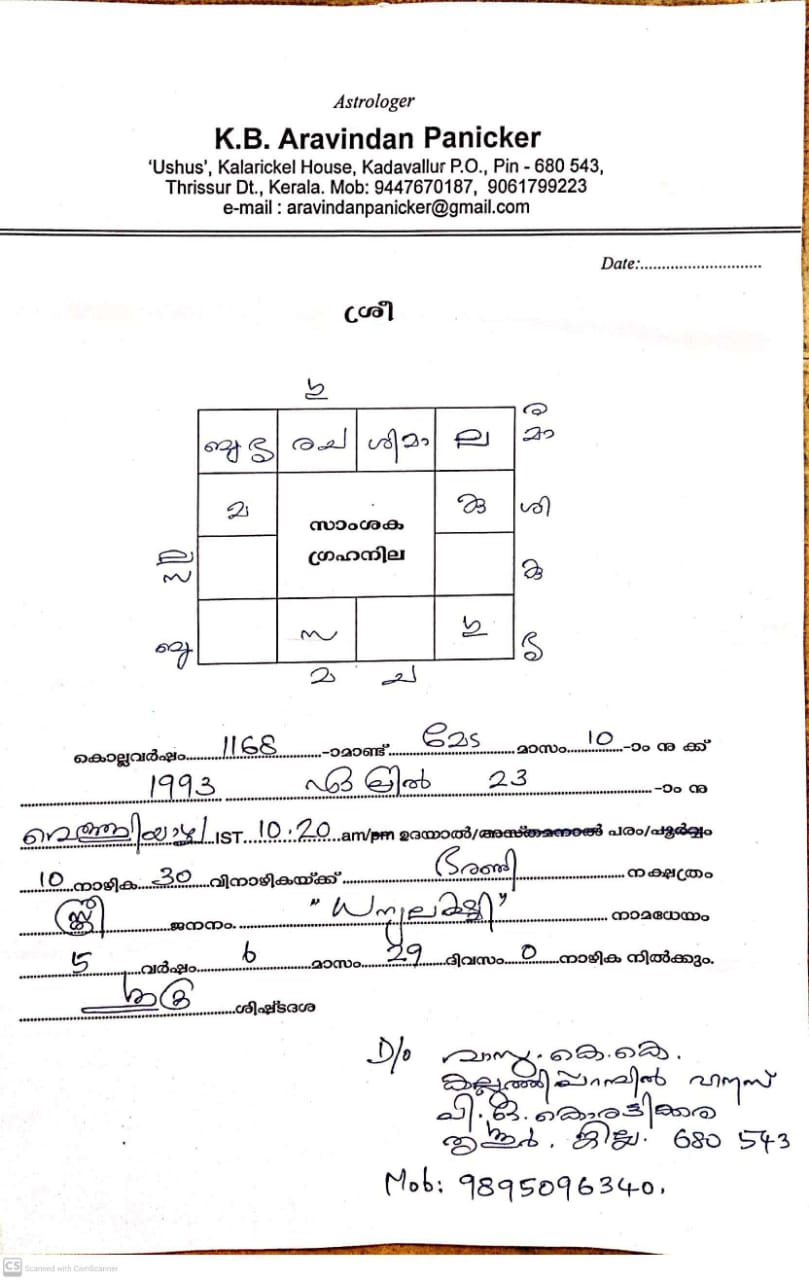 Astrologer
K.B. Aravindan Panicker
'Ushus', Kalarickel House, Kadavallur P.O., Pin - 680 543,
Thrissur Dt., Kerala. Mob: 9447670187, 9061799223
e-mail : aravindanpanicker@gmail.com
Date:............................
ശ്രീ
രച ശിമാ ല മാ
മ സാംശക ശി
ഗ്രഹനില
ല
സ
സ
മ ച
കൊല്ലവർഷം 1168 -ാമാണ്ട് മേട മാസം 10 -ാം നു ക്ക്
1993 ഏപ്രിൽ 23 -ാം നു
വെള്ളിയാഴ്ച IST. 10.20 am/pm ഉദയാൽ/അസ്തമനാൽ പരം/പൂർവ്വം
10 നാഴിക 30 വിനാഴികയ്ക്ക് ഭരണി നക്ഷത്രം
സ്ത്രീ ജനനം. "ധന്യലക്ഷ്മി" നാമധേയം
5 വർഷം 6 മാസം 29 ദിവസം 0 നാഴിക നിൽക്കും.
ശുക്ര ശിഷ്ടദശ
D/o വാസു. കെ. കെ.
ഹൗസ്
പി. ഒ. കൊരട്ടിക്കര
തൃശ്ശൂർ. ജില്ല. 680 543
Mob: 9895096340.
CS Scanned with CamScanner